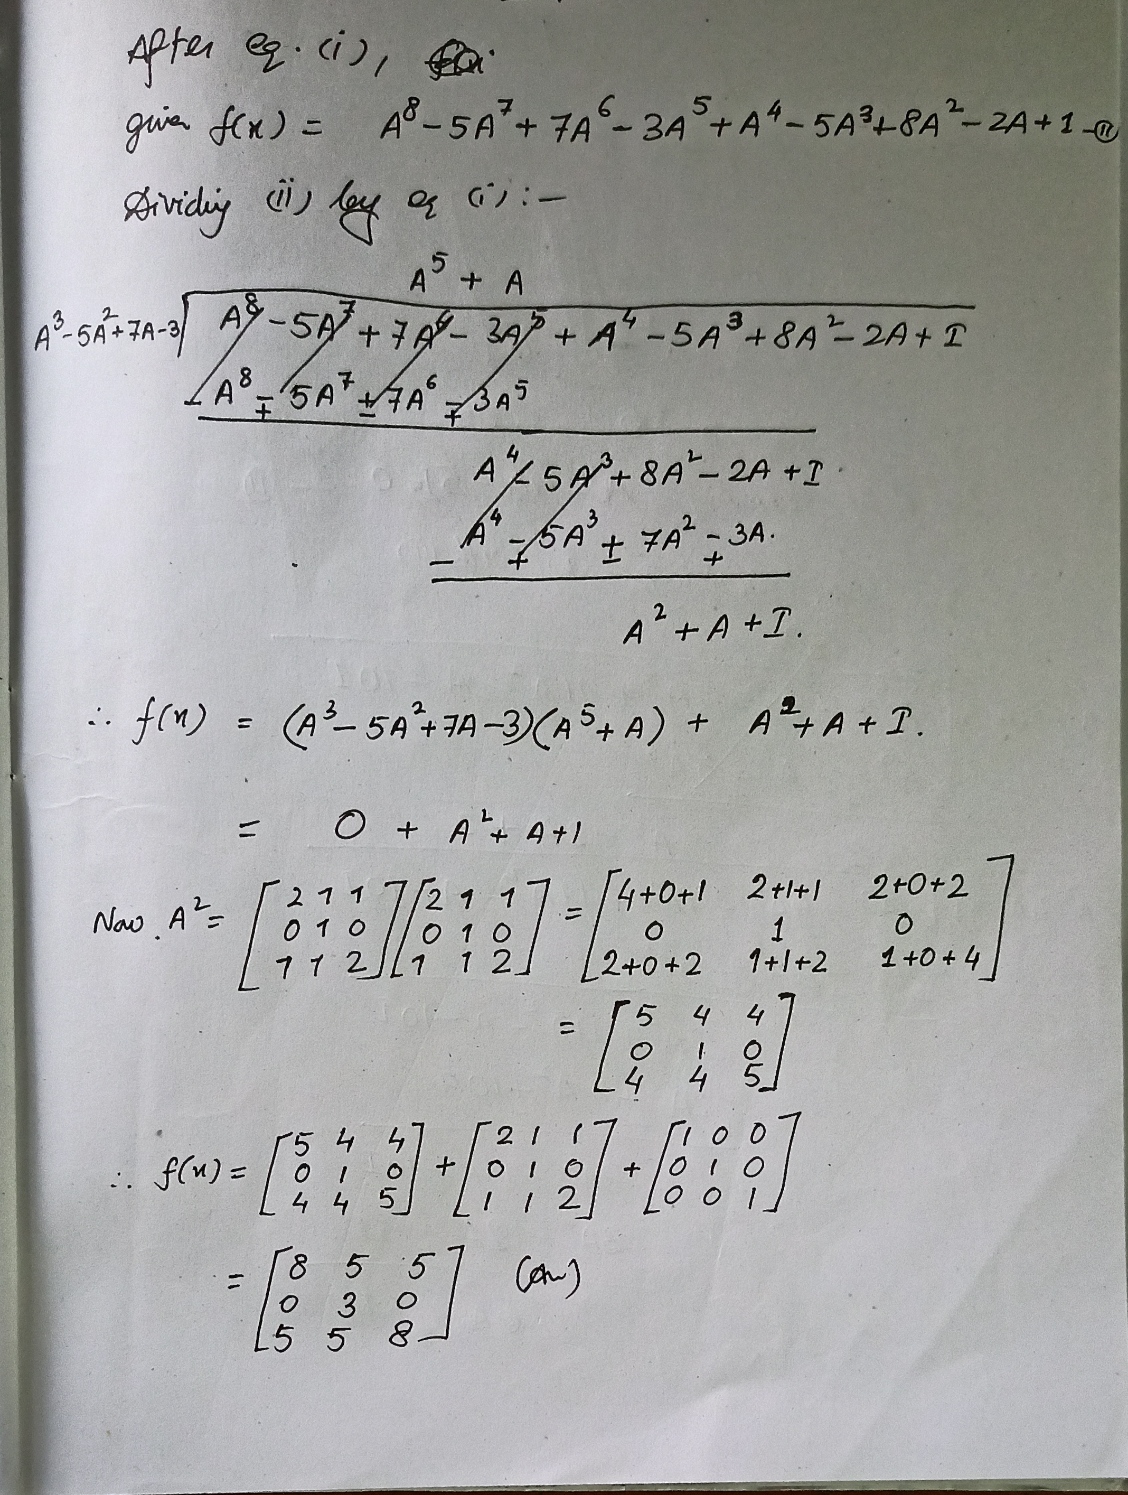 After eq. (i),
given f(x) = A⁸ – 5A⁷ + 7A⁶ – 3A⁵ + A⁴ – 5A³ + 8A² – 2A + 1 –(ii)
Dividing (ii) by eq (i) :–
A⁵ + A
A³–5A²+7A–3) A⁸ – 5A⁷ + 7A⁶ – 3A⁵ + A⁴ – 5A³ + 8A² – 2A + I
– A⁸ ∓ 5A⁷ ± 7A⁶ ∓ 3A⁵
A⁴ – 5A³ + 8A² – 2A + I
– A⁴ ∓ 5A³ ± 7A² ∓ 3A.
A² + A + I.
∴ f(x) = (A³ – 5A² + 7A – 3)(A⁵ + A) + A² + A + I.
= 0 + A² + A + 1
Now. A² = [2 1 1; 0 1 0; 1 1 2] [2 1 1; 0 1 0; 1 1 2] = [4+0+1 2+1+1 2+0+2; 0 1 0; 2+0+2 1+1+2 1+0+4]
= [5 4 4; 0 1 0; 4 4 5]
∴ f(x) = [5 4 4; 0 1 0; 4 4 5] + [2 1 1; 0 1 0; 1 1 2] + [1 0 0; 0 1 0; 0 0 1]
= [8 5 5; 0 3 0; 5 5 8] (Ans)